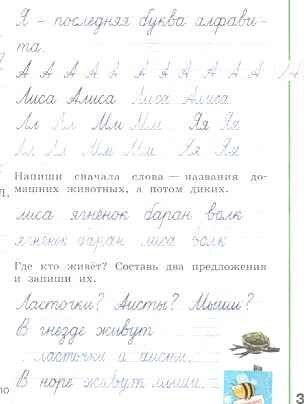 Я – последняя буква алфави-
та.
А А А А А А А А А А А
Лиса Алиса Лиса Алиса
Лл Лл Мм Мм Яя Яя
Лл Лл Мм Мм Яя Яя
Напиши сначала слова — названия до-
машних животных, а потом диких.
лиса ягнёнок баран волк
ягнёнок баран лиса волк
Где кто живёт? Составь два предложения
и запиши их.
Ласточки? Аисты? Мыши?
В гнезде живут
ласточки и аисты.
В норе живут мыши.
3